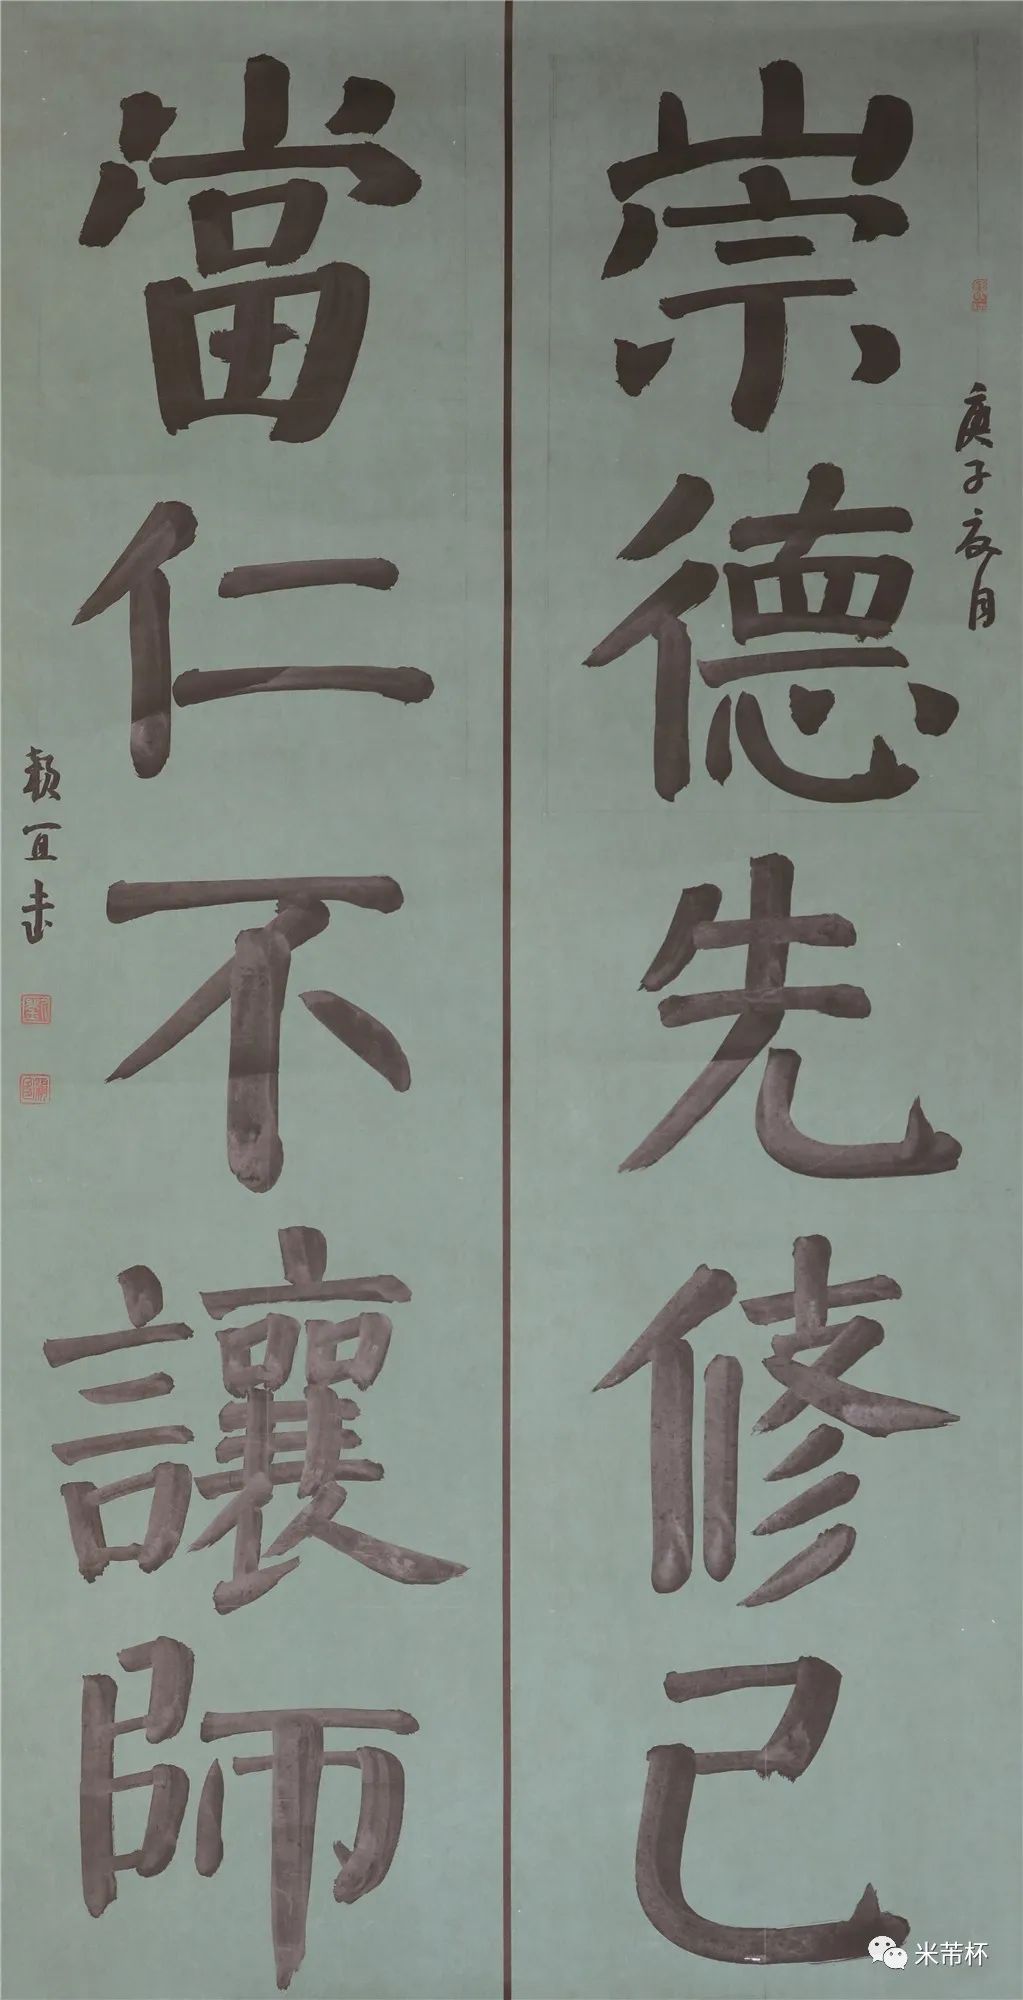 崇德先修己
庚子夏月
當仁不讓師
米芾杯